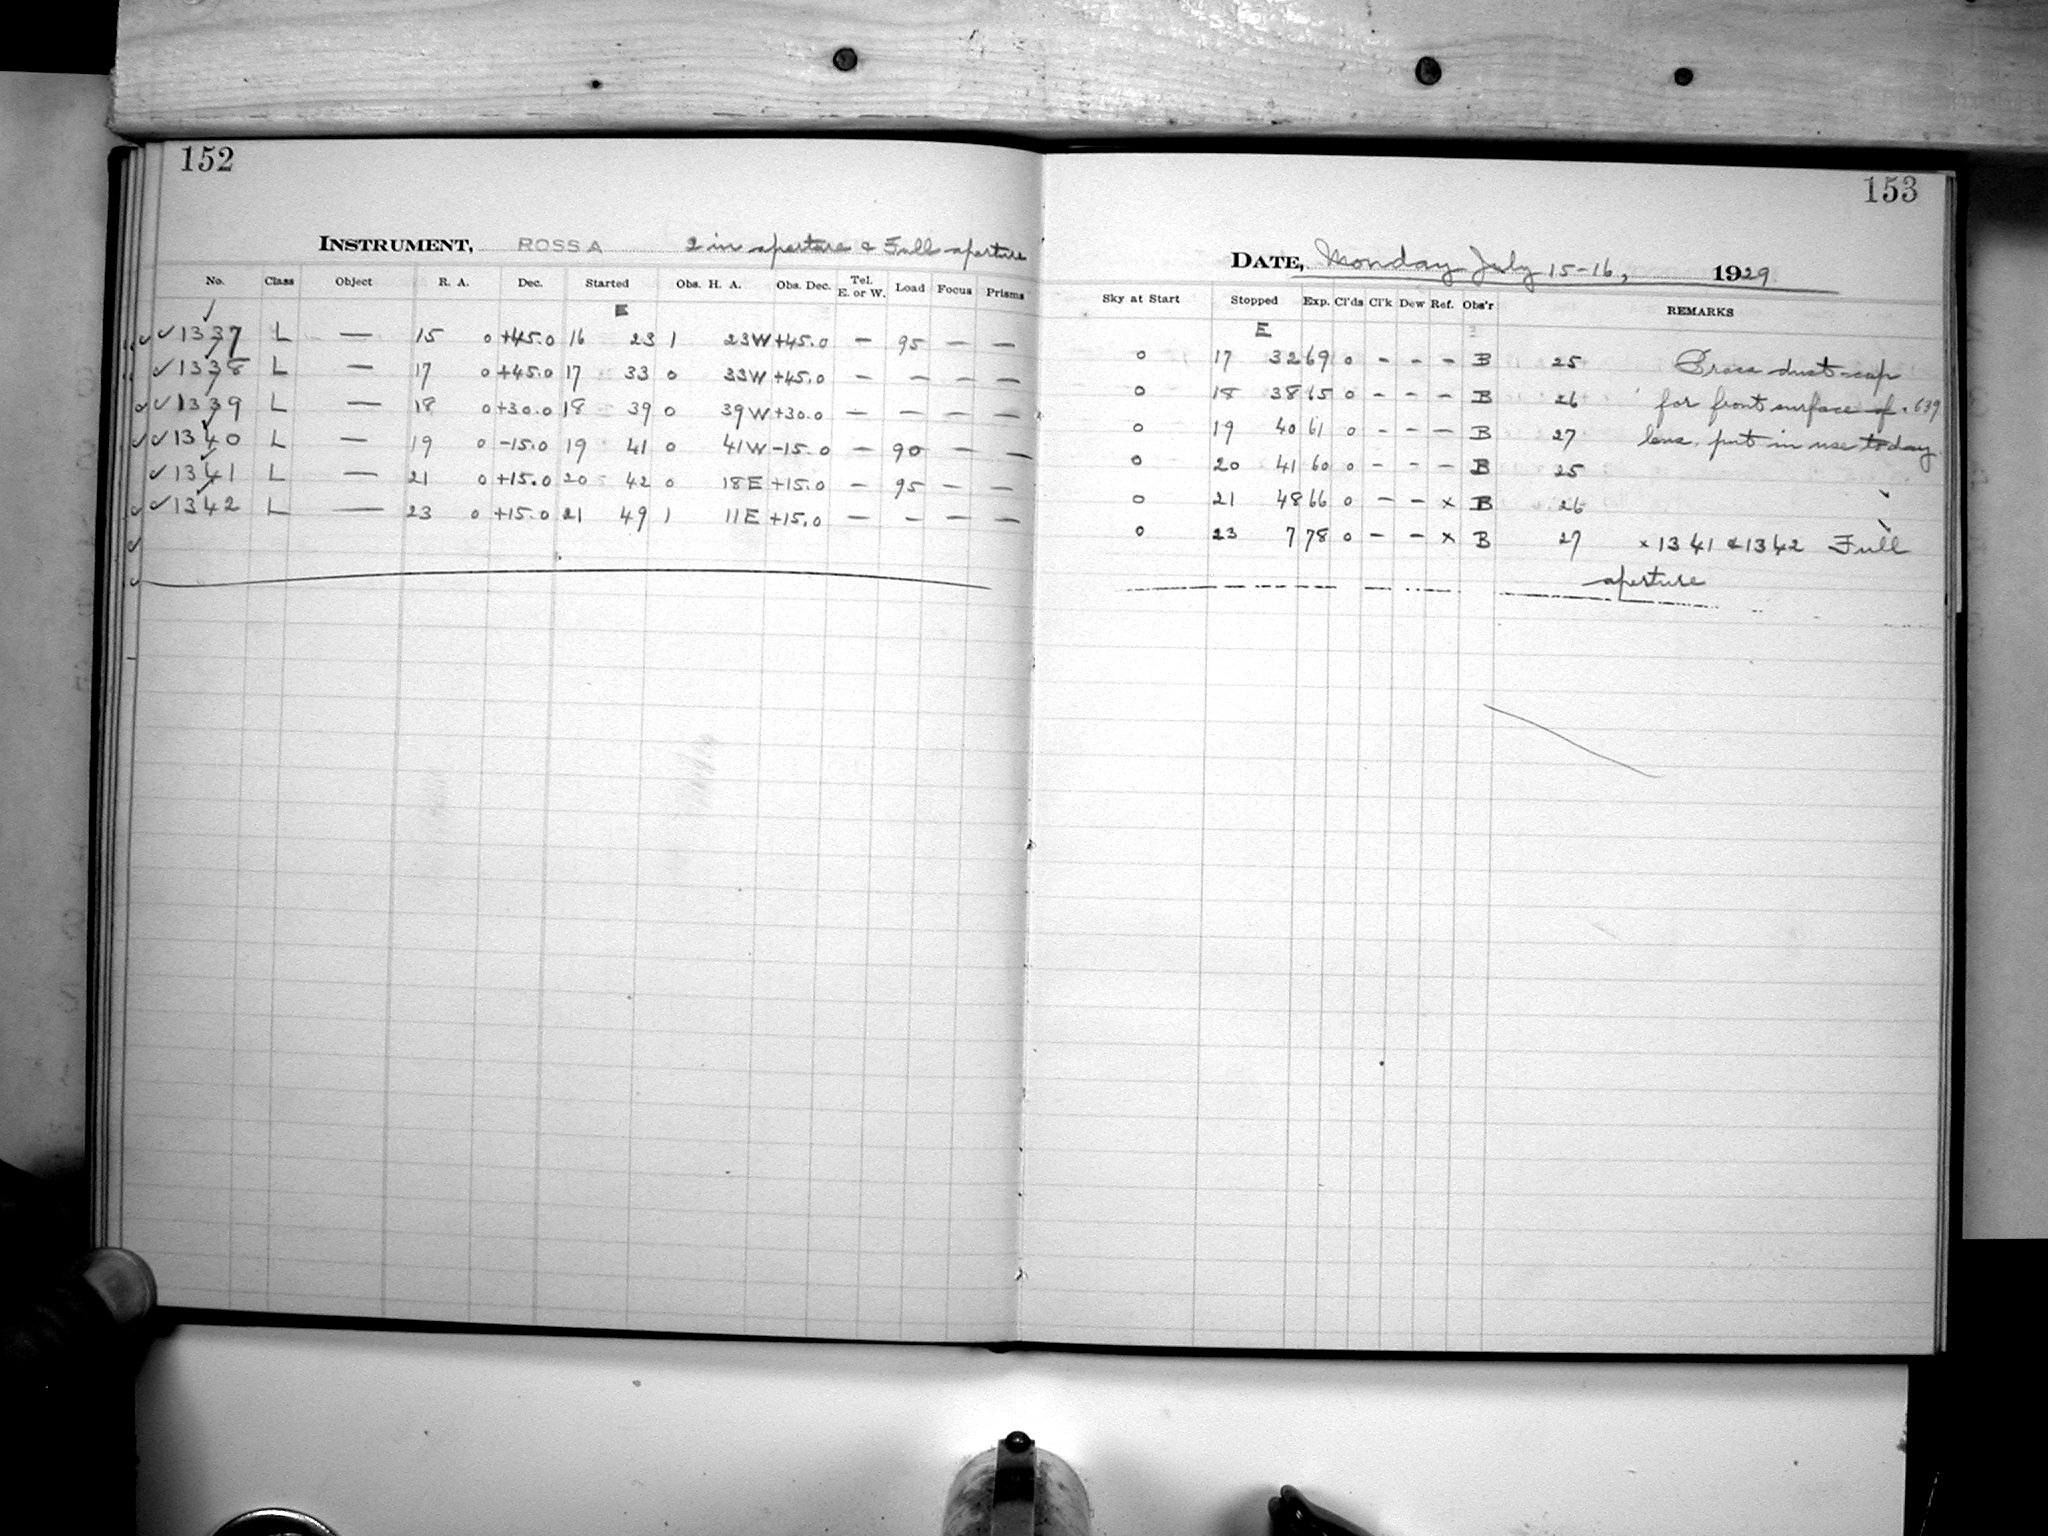 152
INSTRUMENT, ROSS A 2 in aperture & Full aperture
No. Class Object R. A. Dec. Started Obs. H. A. Obs. Dec. Tel. E. or W. Load Focus Prisms
E
1337 L — 15 0 +45.0 16 23 1 23W +45.0 — 95 — —
1338 L — 17 0 +45.0 17 33 0 33W +45.0 — — — —
1339 L — 18 0 +30.0 18 39 0 39W +30.0 — — — —
1340 L — 19 0 -15.0 19 41 0 41W -15.0 — 90 — —
1341 L — 21 0 +15.0 20 42 0 18E +15.0 — 95 — —
1342 L — 23 0 +15.0 21 49 1 11E +15.0 — — — —
153
DATE, Monday July 15-16, 1929
Sky at Start Stopped Exp. Cl'ds Cl'k Dew Ref. Obs'r REMARKS
E
0 17 32 69 0 – – – B 25 Brass dust-cap
0 18 38 65 0 – – – B 26 for front surface of .639
0 19 40 61 0 – – – B 27 lens, put in use today.
0 20 41 60 0 – – – B 25
0 21 48 66 0 – – x B 26
0 23 7 78 0 – – x B 27 x 1341 & 1342 Full
aperture